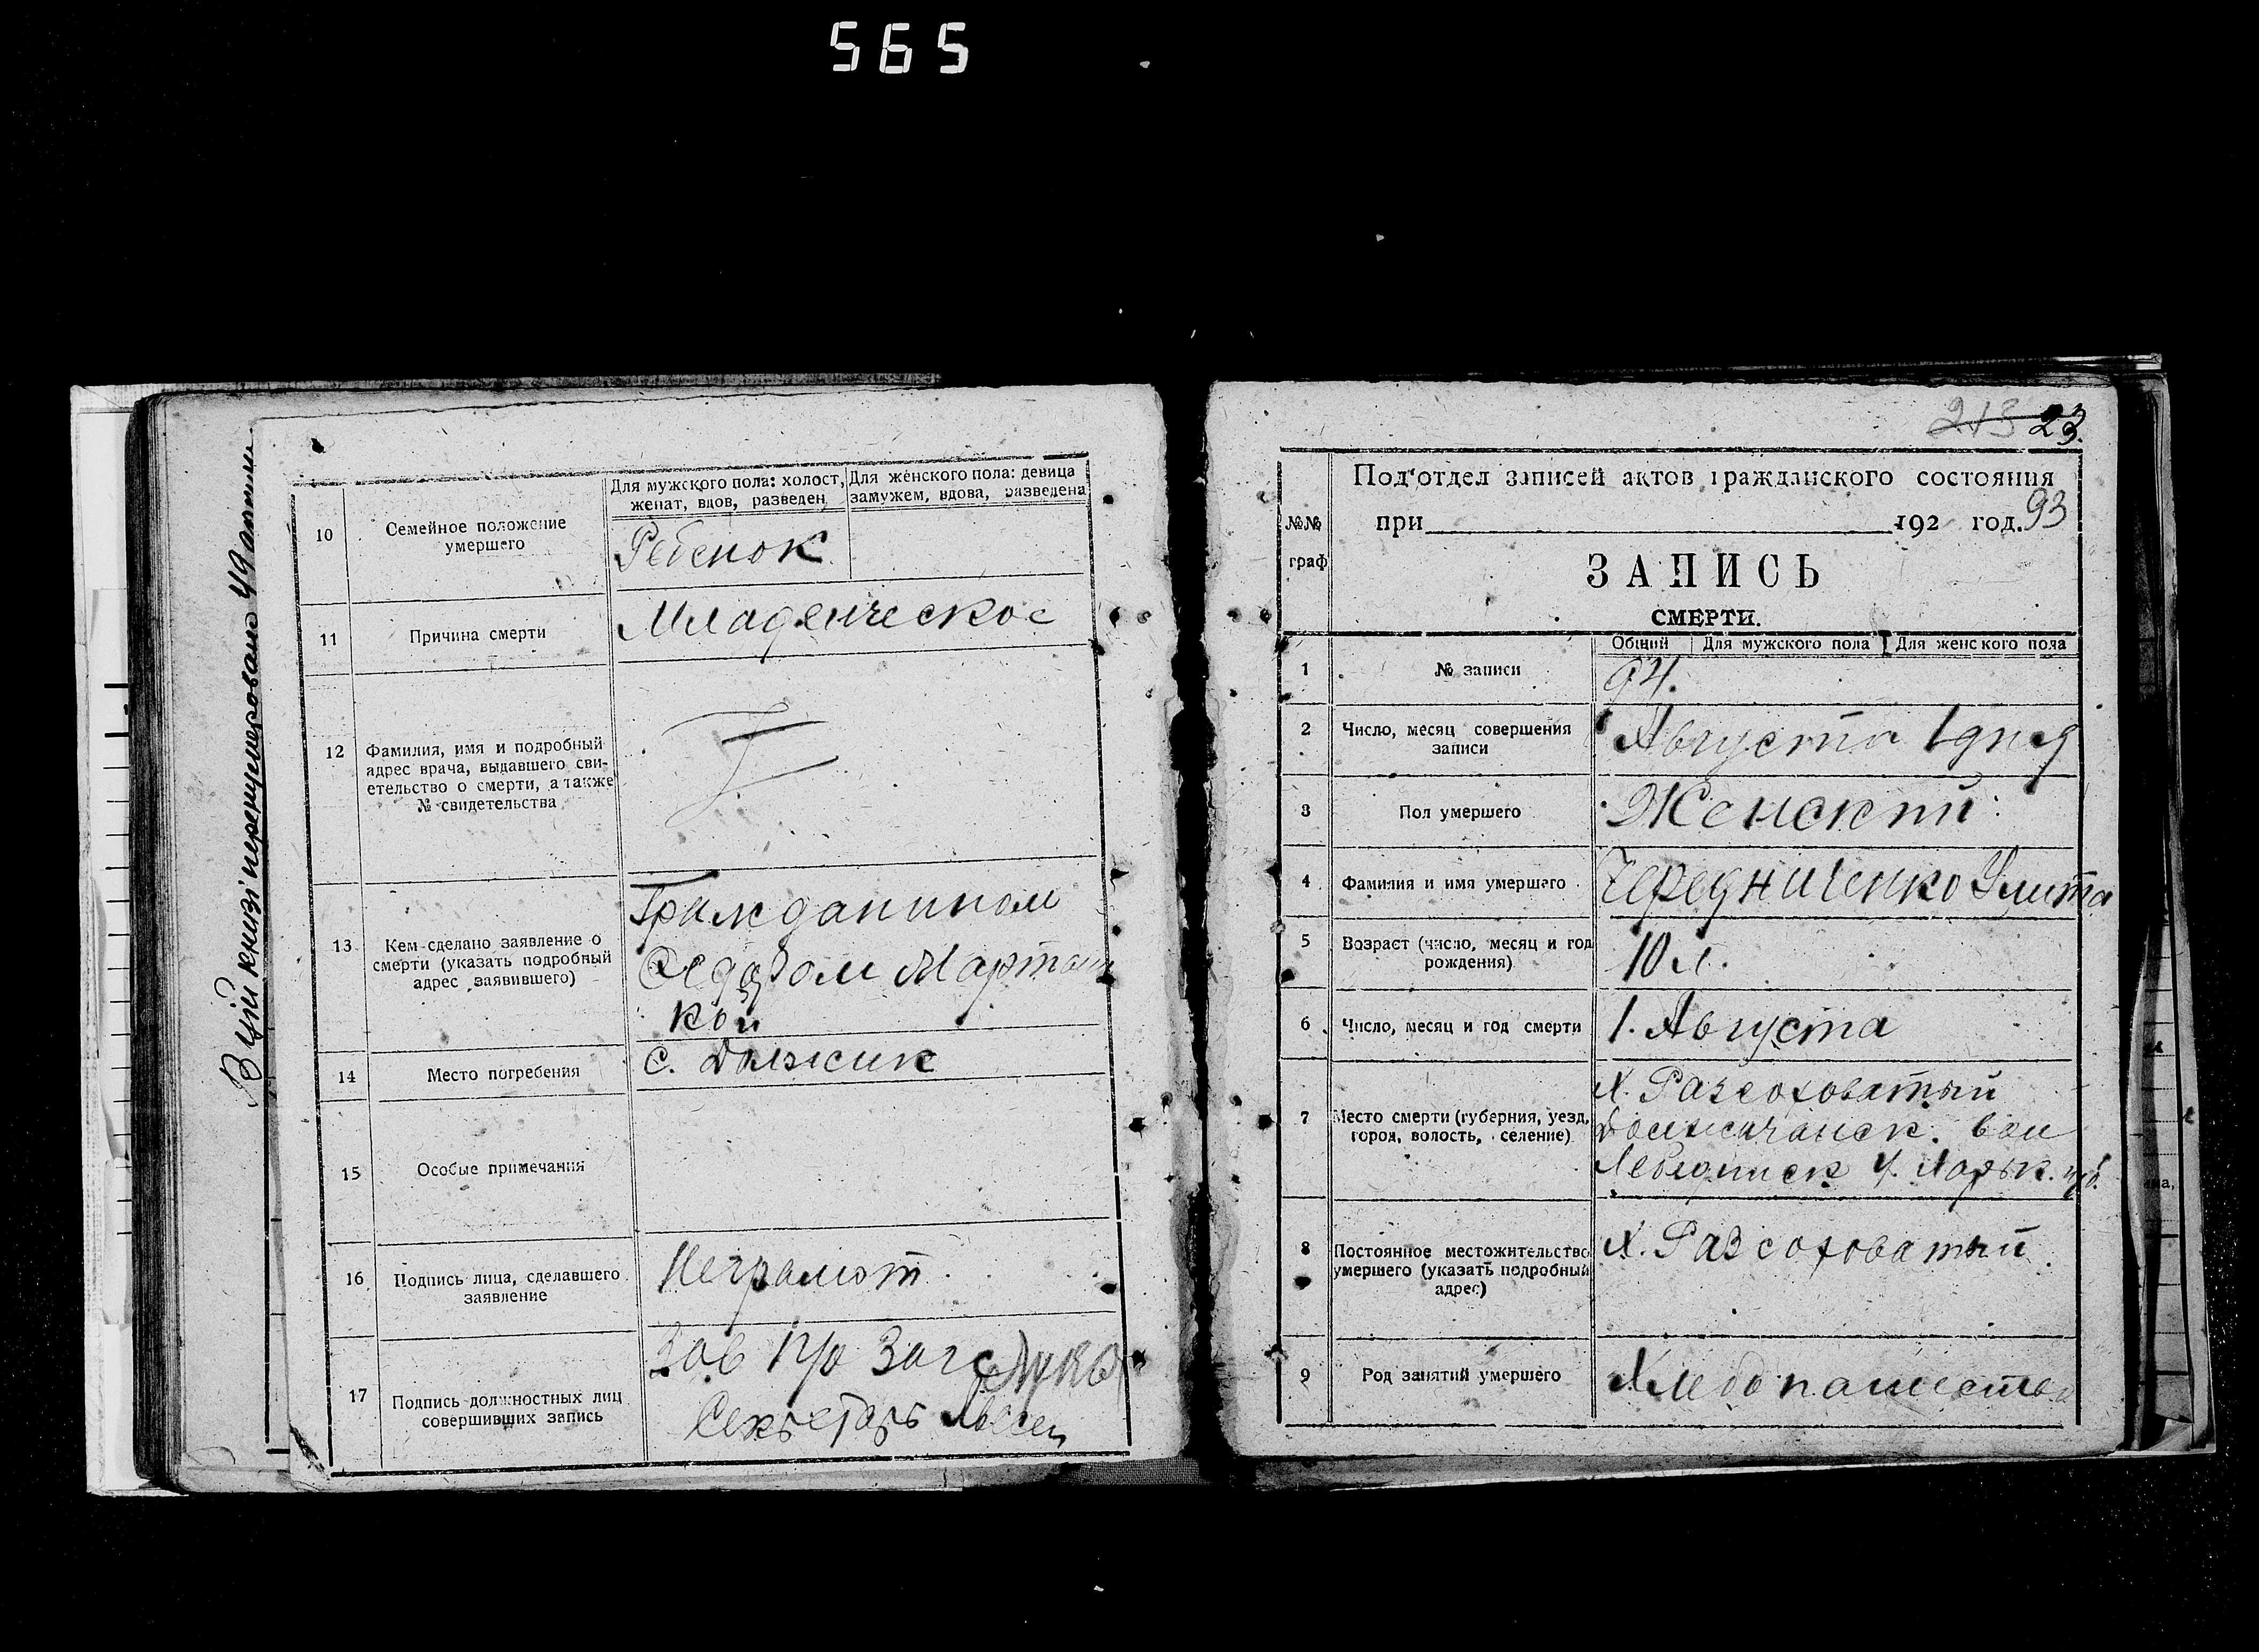 565
В цій книзі перенумеровані 49 актів
Для мужского пола: холост, женат, вдов, разведен
Для женского пола: девица замужем, вдова, разведена
10 Семейное положение умершего
Ребенок
11 Причина смерти
Младенческое
12 Фамилия, имя и подробный
адрес врача, выдавшего сви-
етельство о смерти, а также
№ свидетельства
13 Кем сделано заявление о
смерти (указать подробный
адрес заявившего)
Гражданином
14 Место погребения
с. Должик
15 Особые примечания
16 Подпись лица, сделавшего
заявление
Неграмот.
17 Подпись должностных лиц
совершивших запись
Зав п/о Загс
Секретарь
213 23.
Под'отдел записей актов гражданского состояния
№№ граф
при 192 год. 93
ЗАПИСЬ
СМЕРТИ.
Общий Для мужского пола Для женского пола
1 № записи
94.
2 Число, месяц совершения
записи
Августа 1 дня
3 Пол умершего
Женский
4 Фамилия и имя умершего
Чередниченко Улита
5 Возраст (число, месяц и год
рождения)
10 л.
6 Число, месяц и год смерти
1. Августа
7 Место смерти (губерния, уезд,
город, волость, селение)
Х. Разсоховатый
Должичанск. вол
Лебединск у. Харьк. губ.
8 Постоянное местожительство
умершего (указать подробный
адрес)
Х. Разсоховатый
9 Род занятий умершего
Хлебопашество